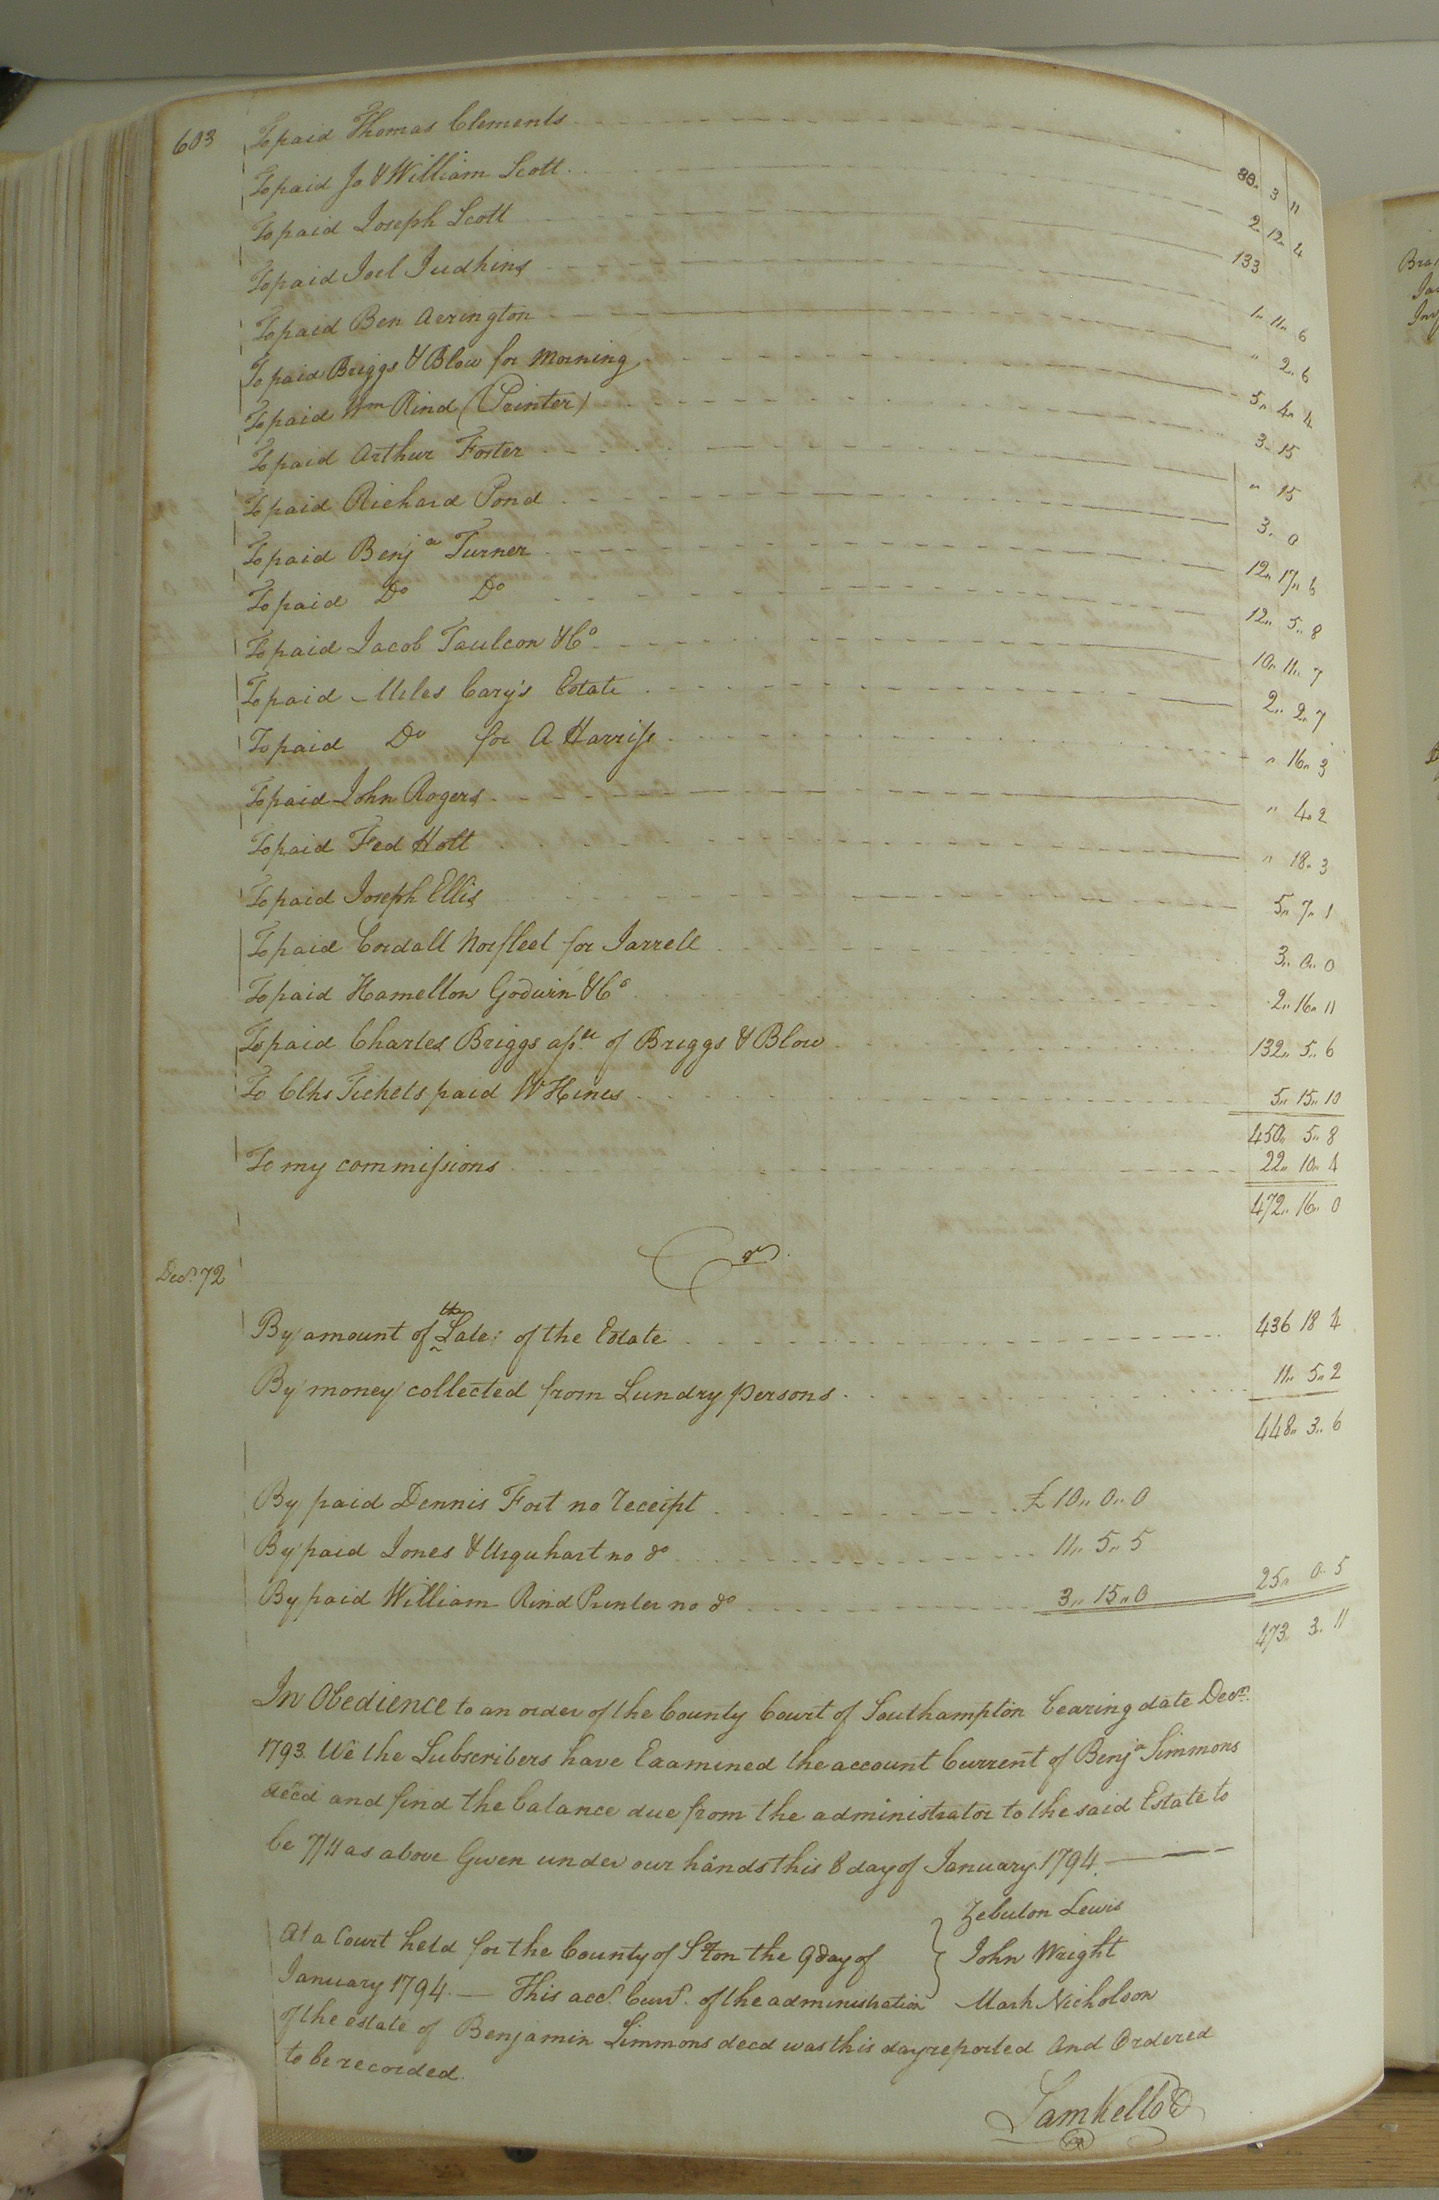 603 To paid Thomas Clements 80 3 11
To paid Jo & William Scott 2 12 4
To paid Joseph Scott 133
To paid Joel Judkins 1 11 6
To paid Ben Arrington " 2 6
To paid Briggs & Blow for Morning 5 4 4
To paid Wm Rind (Printer) 3 15
To paid Arthur Foster " 15
To paid Richard Pond 3 0
To paid Benja Turner 12 17 6
To paid Do Do 12 5 8
To paid Jacob Faulcon & Co 10 11 7
To paid Miles Cary's Estate 2 2 7
To paid Do for A Harriss " 16 3
To paid John Rogers " 4 2
To paid Fed Holt " 18 3
To paid Joseph Ellis 5 7 1
To paid Cordall Norfleet for Jarrell 3 0 0
To paid Hamelton Godwin & Co 2 16 11
To paid Charles Briggs of Briggs & Blow 132 5 6
To Clks Tickets paid W Hines 5 15 10
450 5 8
To my commissions 22 10 4
472 16 0
Cr
Decr 72
By amount of the Sale of the Estate 436 18 4
By money collected from Sundry persons 11 5 2
448 3 6
By paid Dennis Fort no receipt £10 0 0
By paid Jones & Urquhart no do 11 5 5
By paid William Rind Printer no do 3 15 0 25 0 5
473 3 11
In Obedience to an order of the County Court of Southampton bearing date Decr
1793. We the Subscribers have Examined the account Current of Benja Simmons
decd and find the balance due from the administrator to the said Estate to
be 7/11 as above Given under our hands this 8 day of January 1794.
Zebulon Lewis
John Wright
Mark Nicholson
At a Court held for the County of Ston the 9 day of
January 1794. — This acct. Curt. of the administration
of the estate of Benjamin Simmons decd was this day reported And Ordered
to be recorded.
Sam Kello